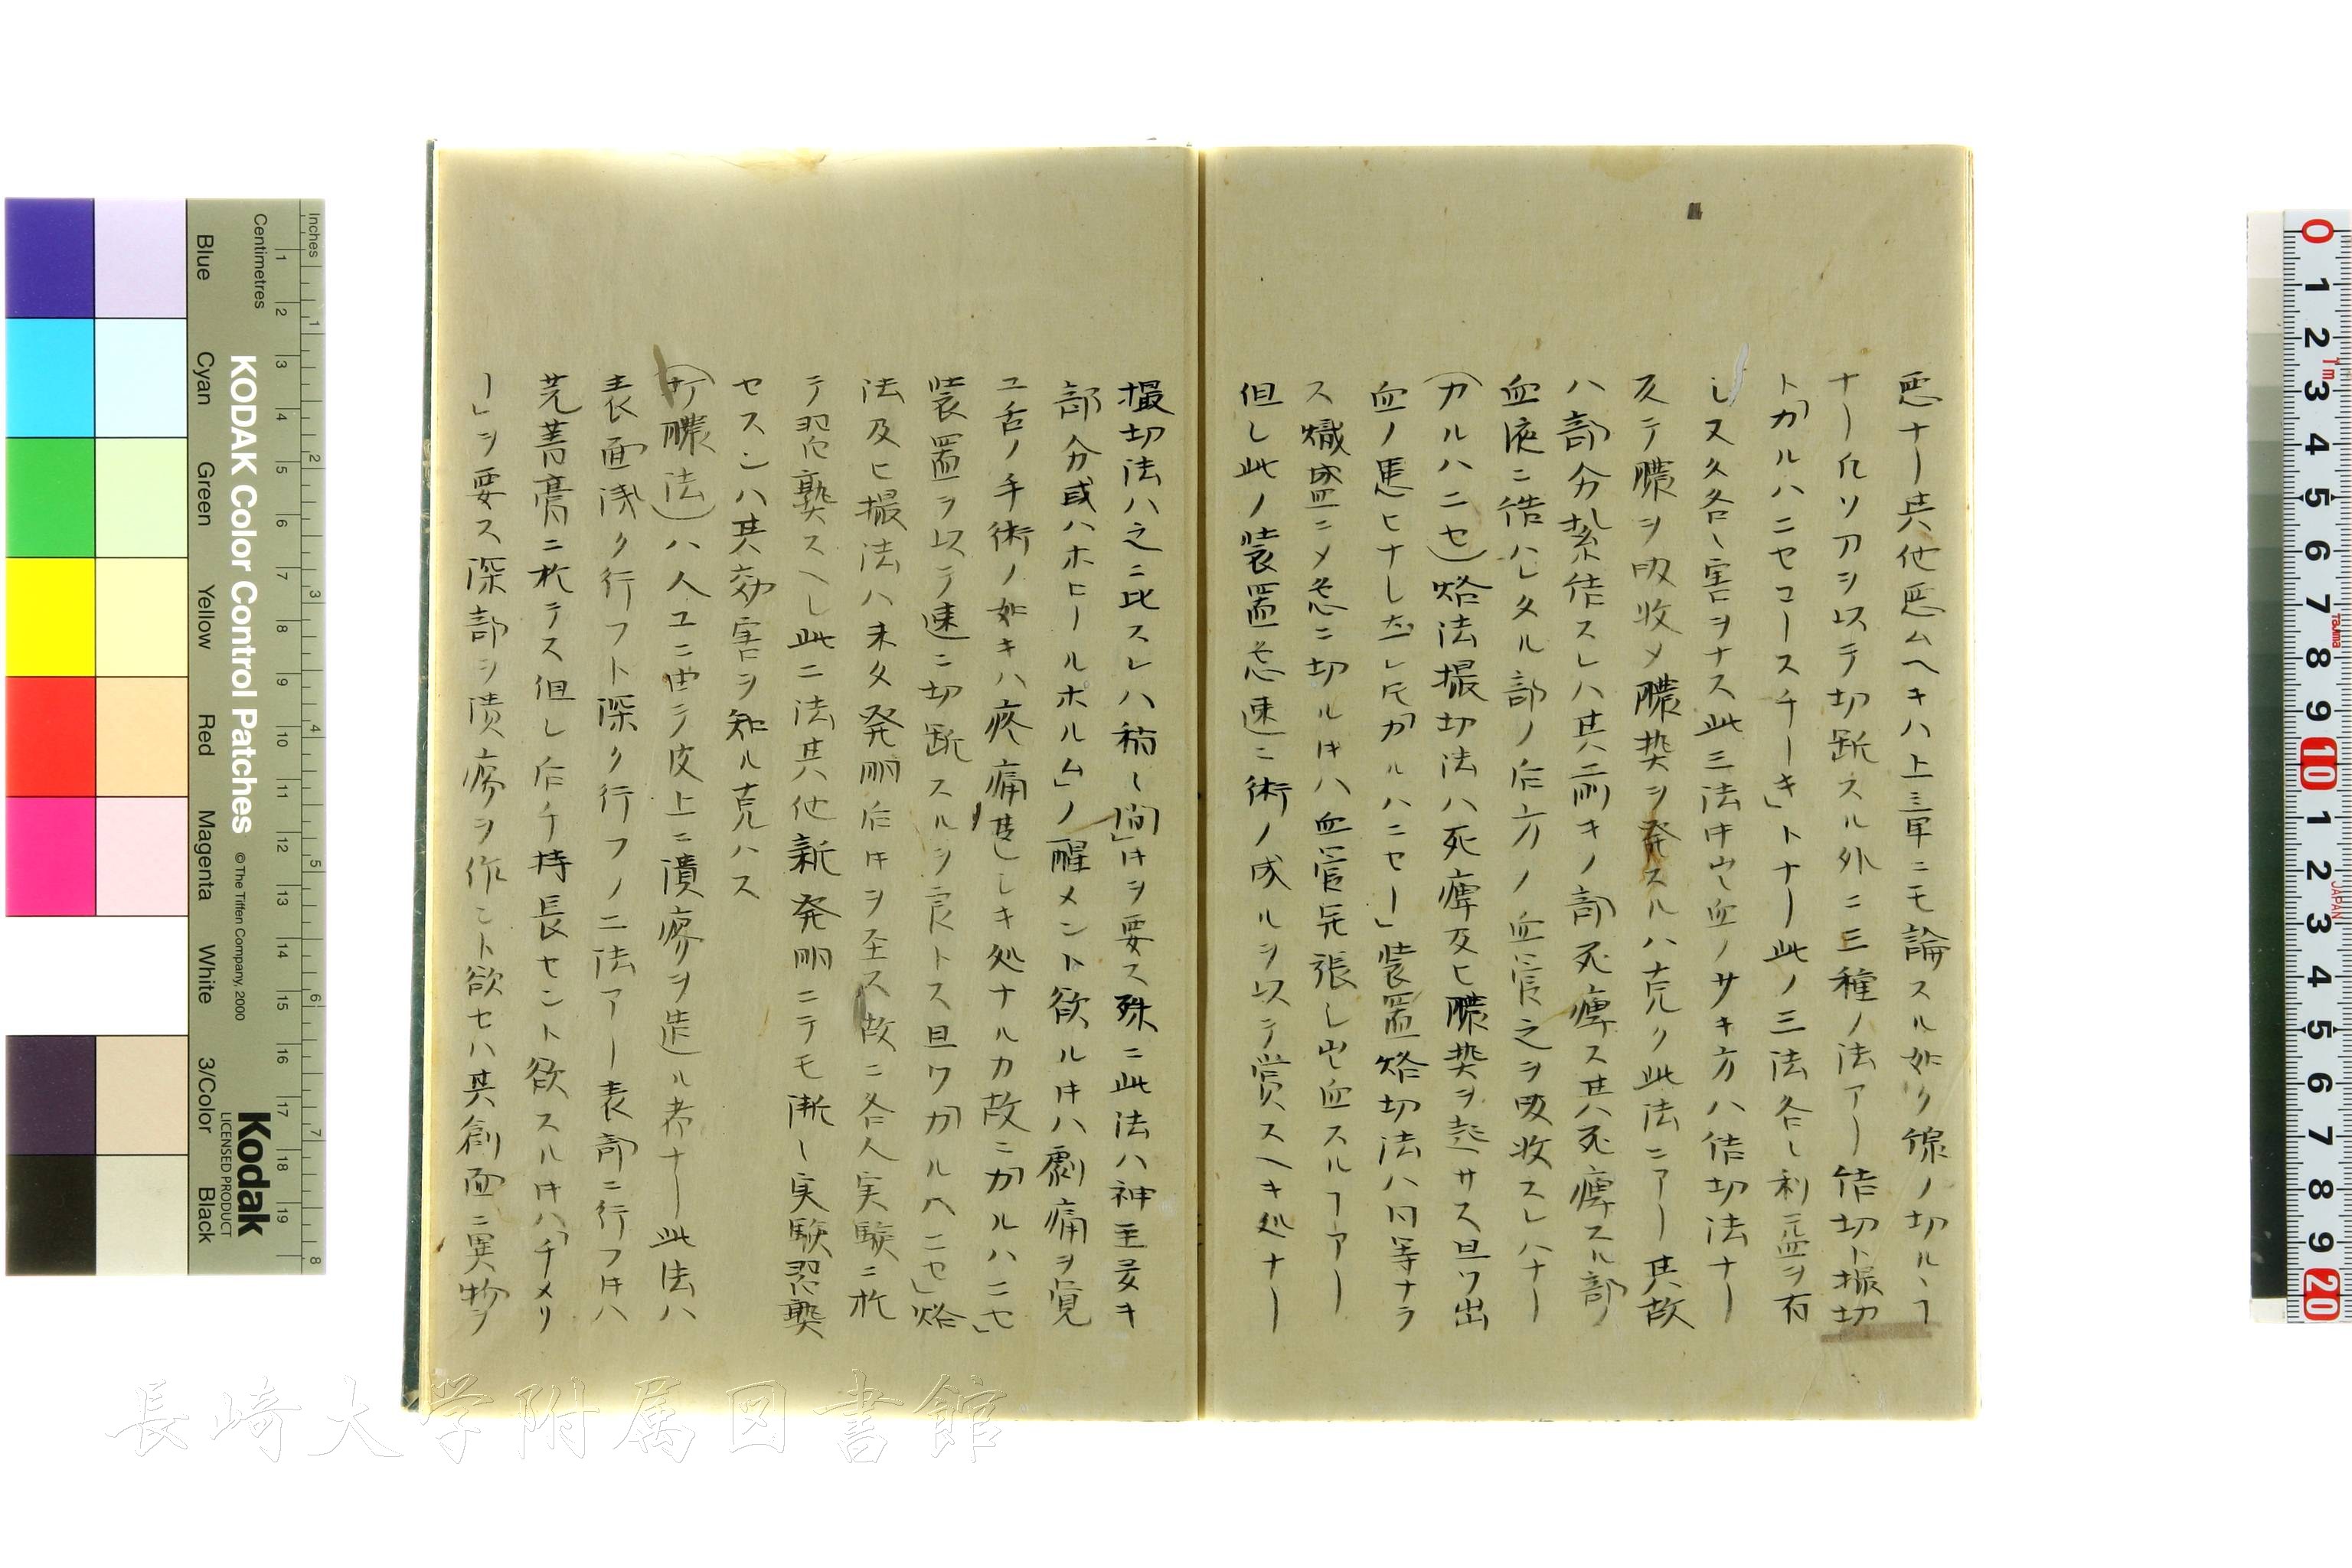 悪ナー其他悪ムヘキハ上三軍ニモ論スル如ク線ノ切ルヽヿ
ナー凡ソ刀ヲ以テ切断スル外ニ三種ノ法アー結切ト撮切
トガルハニセコースチーキ」トナー此ノ三法各〻利益ヲ有
シ又久各〻害ヲナス此三法中出血ノサキ方ハ結切法ナー
反テ膿ヲ吸收メ膿染ヲ発スルハ克ク此法ニアー其故
ハ部分紮結スレハ其前キノ部死痺ス其死痺スル部ノ
血液ニ結ハレタル部ノ后方ノ血管之ヲ吸收スレハナー
(カルハニセ)烙法撮切法ハ死痺及ヒ膿染ヲ起サス且ワ出
血ノ患ヒナシ然レ𪜈ガルハニセー」装置烙切法ハ同等ナラ
ス熾盛ニメ急ニ切ルキハ血管怒張シ出血スルヿアー
但シ此ノ装置急速ニ術ノ成ルヲ以テ賞スヘキ処ナー
撮切法ハ之ニ比スレハ稍〻間」キヲ要ス殊ニ此法ハ神圣多キ
部分或ハホロールホルム」ノ醒メント欲ルキハ劇痛ヲ覚
ユ舌ノ手術ノ如キハ疼痛甚シキ処ナルカ故ニガルハニセ」
装置ヲ以テ速ニ切断スルヲ良トス且ワガルハニセ」烙
法及ヒ撮法ハ未タ発明后キヲ至ス故ニ各人実験ニ於
テ習熟スヘシ此二法其他新発明ニテモ漸〻実験習熟
セスンハ其効害ヲ知ル克ハス
(打膿法)ハ人工ニ由テ皮上ニ潰瘍ヲ造ル者ナー此法ハ
表面浅ク行フト深ク行フノ二法アー表部ニ行フキハ
芫菁膏ニ於テス但シ后チ持長セント欲スルキハ「チメリ
ー」ヲ要ス深部ヲ潰瘍ヲ作ント欲セハ其創面ニ異物ヲ
KODAK Color Control Patches
©The Tiffen Company, 2000
Kodak
LICENSED PRODUCT
Inches
Centimetres
Blue
Cyan
Green
Yellow
Red
Magenta
White
3/Color
Black
長崎大学附属図書館